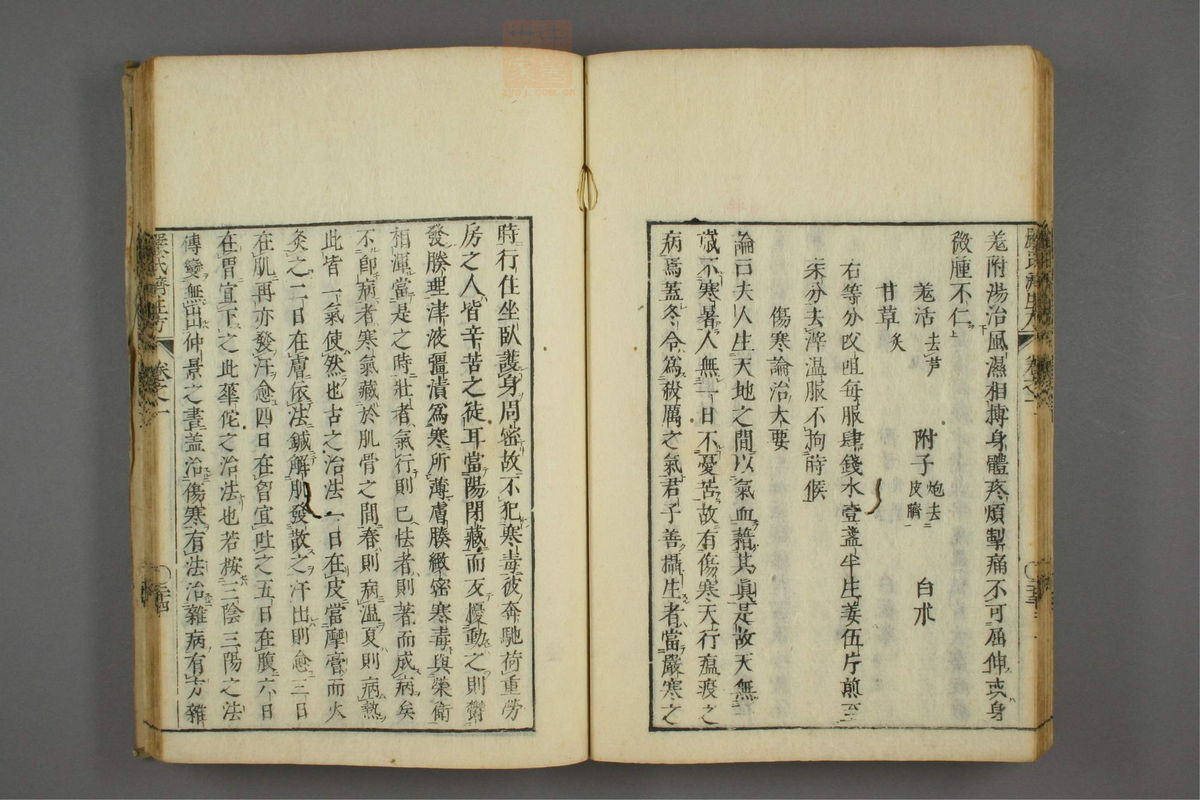 羗附湯治風濕相搏身體疼煩掣痛不可屈伸或身
微腫不仁
羗活去芦 附子炮去皮臍 白朮
甘草炙
右等分㕮咀每服肆錢水壹盞半生姜伍片煎至
柒分去滓温服不拘時候
傷寒論治大要
論曰夫人生天地之間以氣血藉其眞是故天無
歳不寒暑人無一日不憂苦故有傷寒天行瘟疫之
病焉蓋冬令為殺厲之氣君子善攝生者當嚴寒之
時行住坐臥護身周密故不犯寒毒彼奔馳荷重勞
房之人皆辛苦之徒耳當陽閉藏而反擾動之則欝
發腠理津液彊漬爲寒所薄膚腠緻密寒毒與榮衛
相渾當是之時壯者氣行則已怯者則著而成病矣
不即病者寒氣藏於肌骨之間春則病温夏則病熱
此皆一氣使然也古之治法一日在皮當摩膏而火
灸之二日在膚依法鍼解肌發散之汗出則愈三日
在肌再亦發汗愈四日在胷宜吐之五日在腹六日
在胃宜下之此華佗之治法也若按三陰三陽之法
傳變無出仲景之書盖治傷寒有法治雜病有方雜
嚴氏濟生方 卷之一